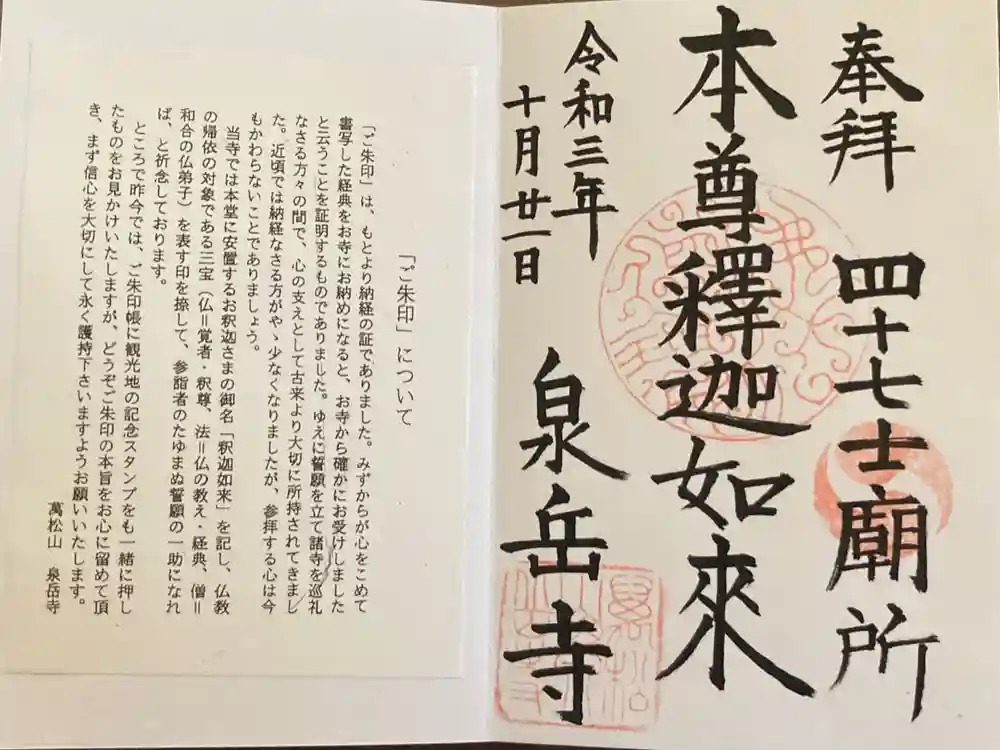 奉拝 四十七士廟所
本尊釋迦如來
令和三年
十月廿一日
泉岳寺
「ご朱印」について
「ご朱印」は、もとより納経の証でありました。みずからが心をこめて
書写した経典をお寺にお納めになると、お寺から確かにお受けしました
と云うことを証明するものでありました。ゆえに誓願を立て諸寺を巡礼
なさる方々の間で、心の支えとして古来より大切に所持されてきまし
た。近頃では納経なさる方がやゝ少なくなりましたが、参拝する心は今
もかわらないことでありましょう。
当寺では本堂に安置するお釈迦さまの御名「釈迦如来」を記し、仏教
の帰依の対象である三宝（仏＝覚者・釈尊、法＝仏の教え・経典、僧＝
和合の仏弟子）を表す印を捺して、参詣者のたゆまぬ誓願の一助になれ
ば、と祈念しております。
ところで昨今では、ご朱印帳に観光地の記念スタンプをも一緒に押し
たものをお見かけいたしますが、どうぞご朱印の本旨をお心に留めて頂
き、まず信心を大切にして永く護持下さいますようお願いいたします。
萬松山 泉岳寺